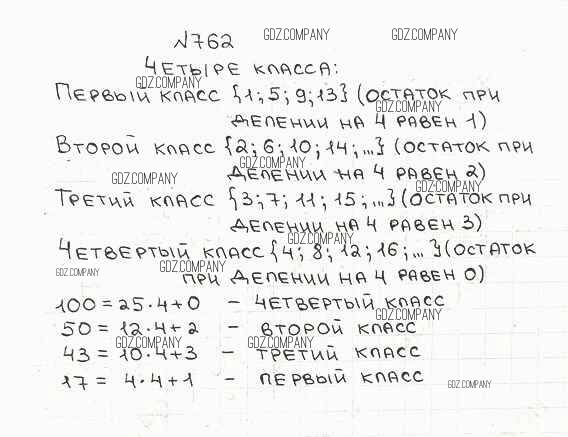 №762
GDZ.COMPANY GDZ.COMPANY
ЧЕТЫРЕ КЛАССА:
GDZ.COMPANY
ПЕРВЫЙ КЛАСС {1; 5; 9; 13} (ОСТАТОК ПРИ
GDZ.COMPANY
ДЕЛЕНИИ НА 4 РАВЕН 1)
ВТОРОЙ КЛАСС {2; 6; 10; 14; ...} (ОСТАТОК ПРИ
GDZ.COMPANY
ДЕЛЕНИИ НА 4 РАВЕН 2)
GDZ.COMPANY GDZ.COMPANY
ТРЕТИЙ КЛАСС {3; 7; 11; 15; ...} (ОСТАТОК ПРИ
ДЕЛЕНИИ НА 4 РАВЕН 3)
GDZ.COMPANY
ЧЕТВЕРТЫЙ КЛАСС {4; 8; 12; 16; ...} (ОСТАТОК
GDZ.COMPANY GDZ.COMPANY
ПРИ ДЕЛЕНИИ НА 4 РАВЕН 0)
100 = 25 · 4 + 0 – ЧЕТВЕРТЫЙ КЛАСС
GDZ.COMPANY
50 = 12 · 4 + 2 – ВТОРОЙ КЛАСС
GDZ.COMPANY GDZ.COMPANY
43 = 10 · 4 + 3 – ТРЕТИЙ КЛАСС
17 = 4 · 4 + 1 – ПЕРВЫЙ КЛАСС
GDZ.COMPANY